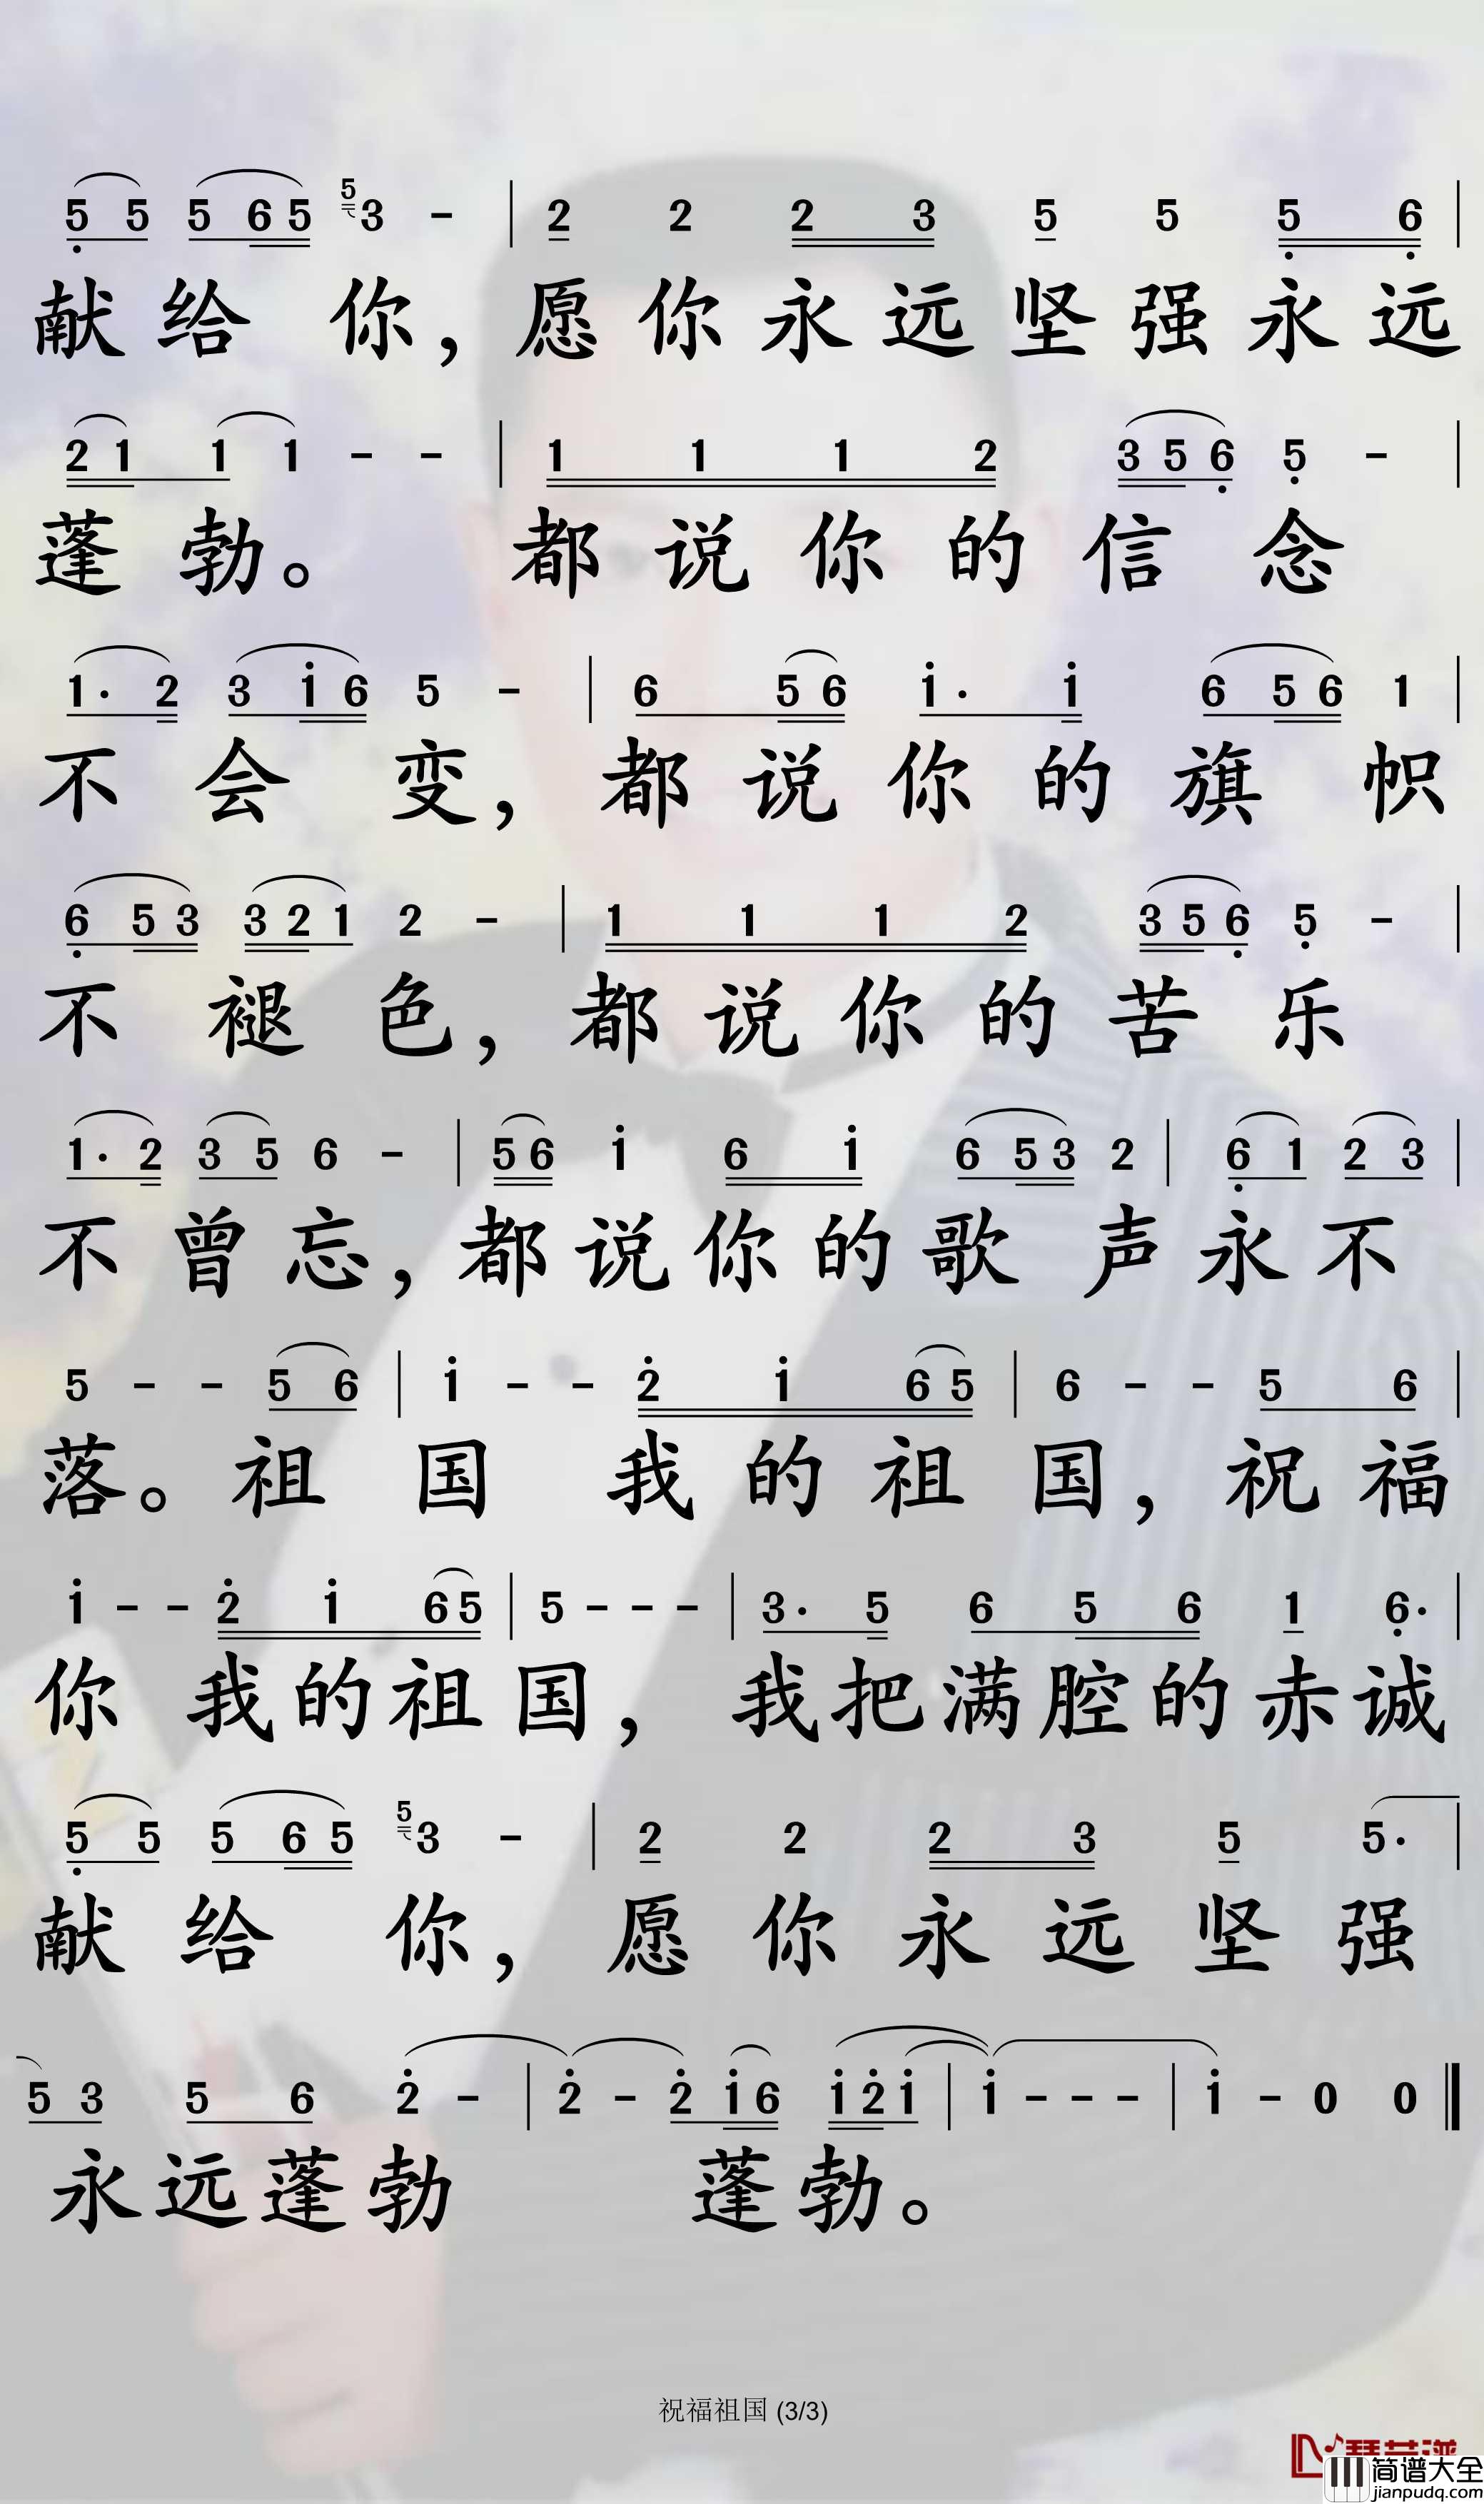 5 5 5 6 5 5 3 - | 2 2 2 3 5 5 5 6 |
献给 你,愿你永远坚强永远
2 1 1 1 - - | 1 1 1 2 3 5 6 5 - |
蓬勃。 都说你的信念
1· 2 3 i 6 5 - | 6 5 6 i· i 6 5 6 1 |
不会变,都说你的旗帜
6 5 3 3 2 1 2 - | 1 1 1 2 3 5 6 5 - |
不褪色,都说你的苦乐
1· 2 3 5 6 - | 5 6 i 6 i 6 5 3 2 | 6 1 2 3 |
不曾忘,都说你的歌声永不
5 - - 5 6 | i - - 2 i 6 5 | 6 - - 5 6 |
落。祖国 我的祖国,祝福
i - - 2 i 6 5 | 5 - - - | 3· 5 6 5 6 1 6· |
你 我的祖国, 我把满腔的赤诚
5 5 5 6 5 5 3 - | 2 2 2 3 5 5· |
献给 你,愿你永远坚强
5 3 5 6 2 - | 2 - 2 i 6 i 2 i | i - - - | i - 0 0 ‖
永远蓬勃 蓬勃。
祝福祖国 (3/3)
简谱大全
jianpudq.com